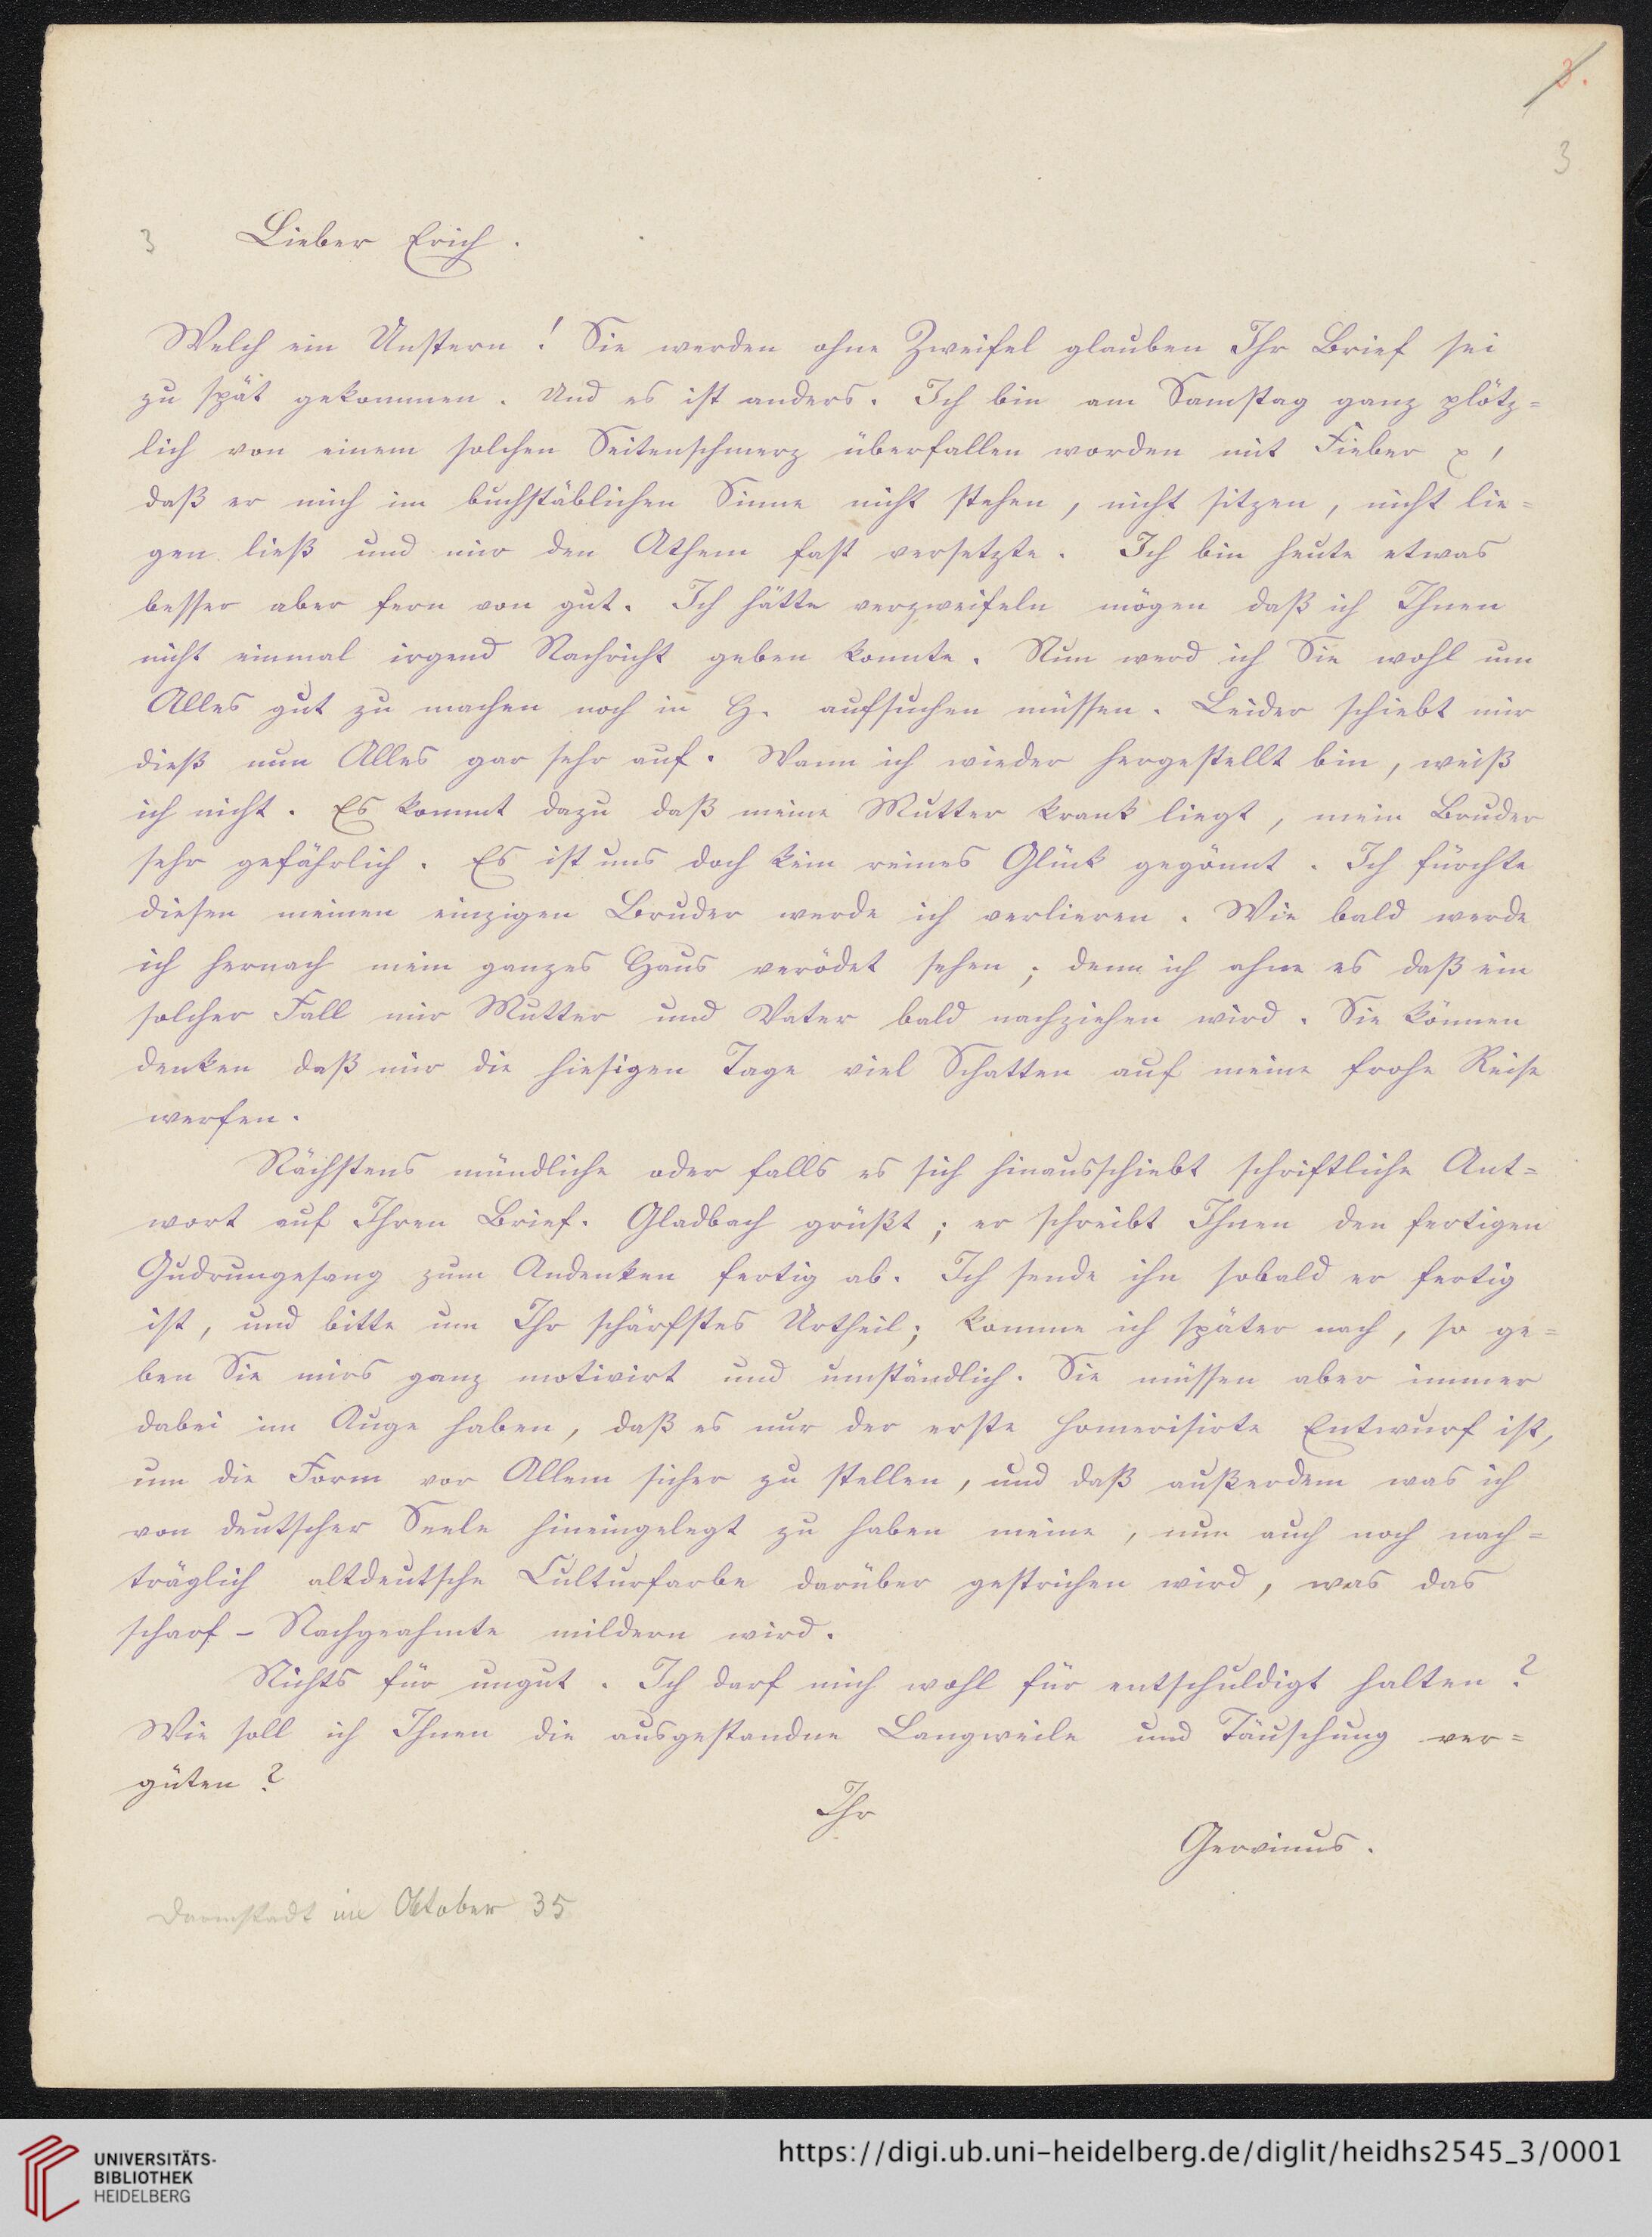 3.
3
3 Lieber Erich.
Welch ein Unstern! Sie werden ohne Zweifel glauben Ihr Brief sei
zu spät gekommen. Und es ist anders. Ich bin am Samstag ganz plötz=
lich von einem solchen Seitenschmerz überfallen worden mit Fieber ,
daß er mich im buchstäblichen Sinne nicht stehen, nicht sitzen, nicht lie=
gen ließ und mir den Athem fast versetzte. Ich bin heute etwas
besser aber fern von gut. Ich hätte verzweifeln mögen daß ich Ihnen
nicht einmal irgend Nachricht geben konnte. Nun werd ich Sie wohl um
Alles gut zu machen noch in H. aufsuchen müssen. Leider schiebt mir
dieß nun Alles gar sehr auf. Wann ich wieder hergestellt bin, weiß
ich nicht. Es kommt dazu daß meine Mutter krank liegt, mein Bruder
sehr gefährlich. Es ist uns doch kein reines Glück gegönnt. Ich fürchte
diesen meinen einzigen Bruder werde ich verlieren. Wie bald werde
ich hernach mein ganzes Haus verödet sehen; denn ich ahne es daß ein
solcher Fall mir Mutter und Vater bald nachziehen wird. Sie können
denken daß mir die hiesigen Tage viel Schatten auf meine frohe Reise
werfen.
Nächstens mündliche oder falls es sich hinausschiebt schriftliche Ant=
wort auf Ihren Brief. Gladbach grüßt; er schreibt Ihnen den fertigen
Gudrungesang zum Andenken fertig ab. Ich sende ihn sobald er fertig
ist, und bitte um Ihr schärfstes Urtheil; komme ich später nach, so ge=
ben Sie mirs ganz motivirt und umständlich. Sie müssen aber immer
dabei im Auge haben, daß es nur der erste homerisirte Entwurf ist,
um die Form vor Allem sicher zu stellen, und daß außerdem was ich
von deutscher Seele hineingelegt zu haben meine, nun auch noch nach=
träglich altdeutsche Culturfarbe darüber gestrichen wird, was das
scharf-Nachgeahmte mildern wird.
Nichts für ungut. Ich darf mich wohl für entschuldigt halten?
Wie soll ich Ihnen die ausgestandne Langweile und Täuschung ver=
güten?
Ihr
Gervinus.
Darmstadt im Oktober 35
UNIVERSITÄTS-
BIBLIOTHEK
HEIDELBERG
https://digi.ub.uni-heidelberg.de/diglit/heidhs2545_3/0001